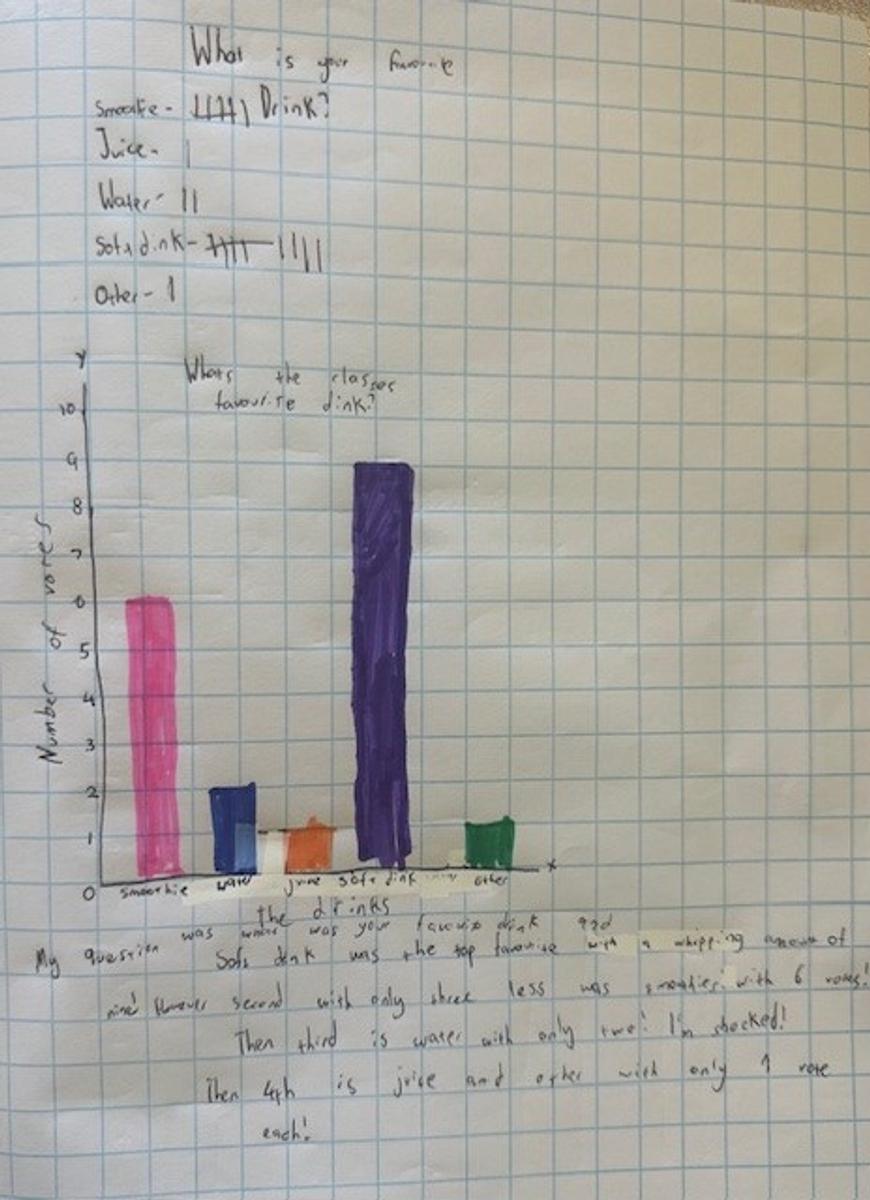 What is your favorite
Smoothie - 卌 | Drink?
Juice - |
Water - ||
Soft dink - 卌 ||||
Other - 1
Y
Whats the classes
favourite dink?
10
9
8
7
6
5
4
3
2
1
0
Number of votes
smoothie water juice soft dink other x
the drinks
My question was what was your favourite drink and
Soft dink was the top favourite with a whipping amount of
nine! However second with only three less was smoothies with 6 votes!
Then third is water with only two! I'm shocked!
Then 4th is juice and other with only 1 vote
each!